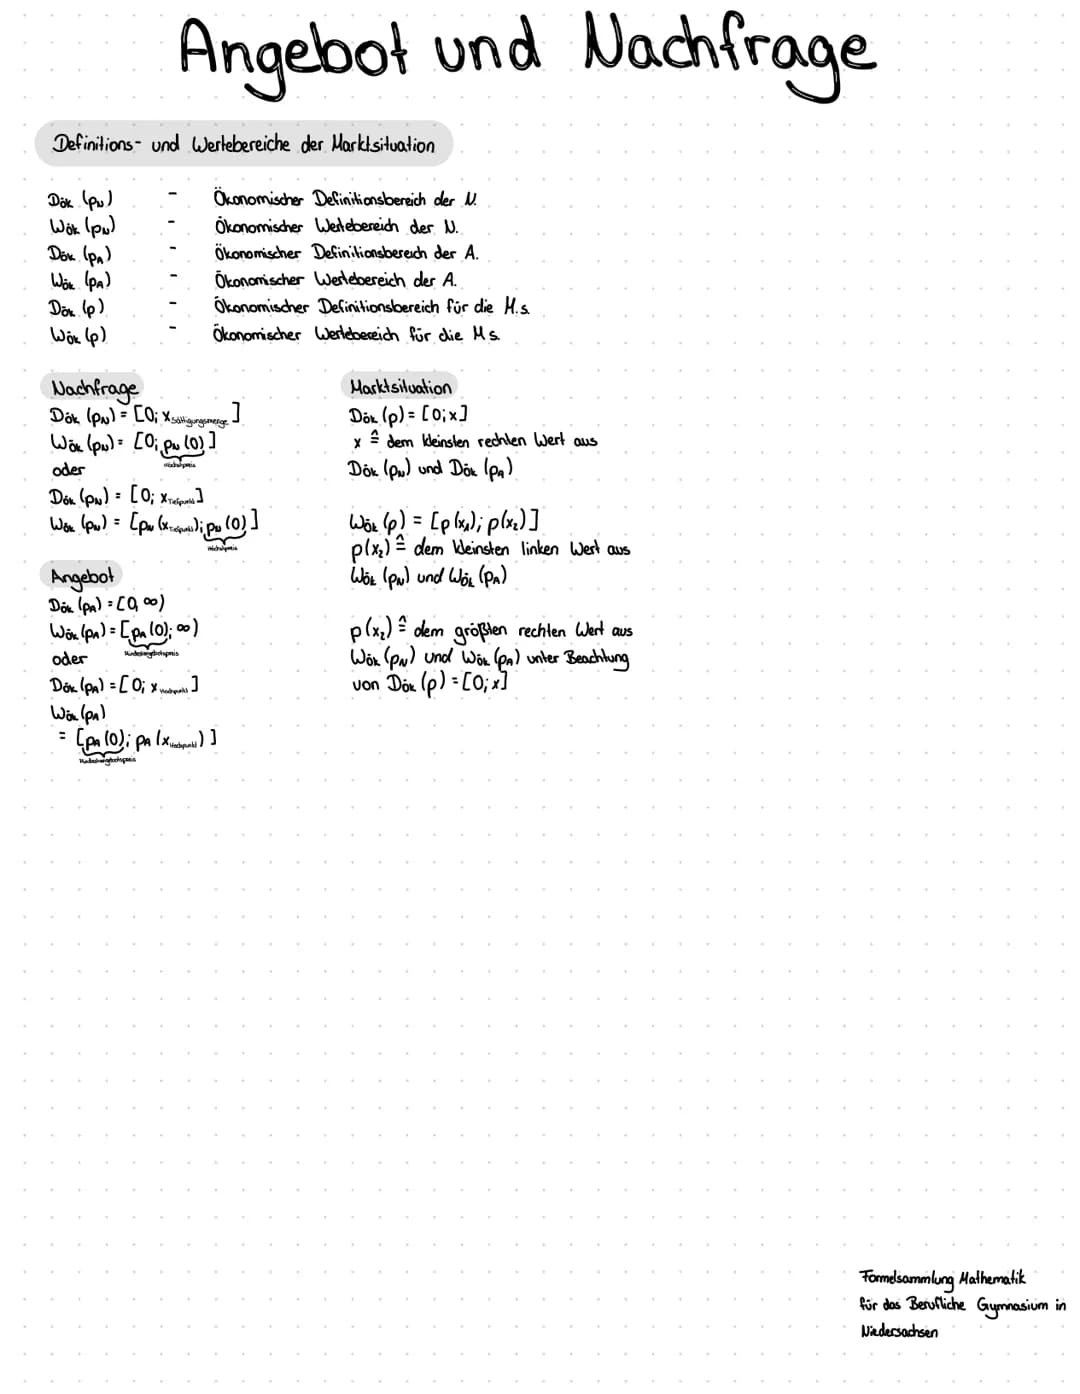 Angebot und Nachfrage
Definitions- und Wertebereiche der Marktsituation
Dök (pN) - Ökonomischer Definitionsbereich der N.
Wök (pN) - Ökonomischer Wertebereich der N.
Dök (pA) - Ökonomischer Definitionsbereich der A.
Wök (pA) - Ökonomischer Wertebereich der A.
Dök (p) - Ökonomischer Definitionsbereich für die M.s.
Wök (p) - Ökonomischer Wertebereich für die M s.
Nachfrage
Dök (pN) = [0; xSättigungsmenge]
Wök (pN) = [0; pN (0)]
Höchstpreis
oder
Dök (pN) = [0; xTiefpunkt]
Wök (pN) = [pN (xTiefpunkt); pN (0)]
Höchstpreis
Angebot
Dök (pA) = [0, ∞)
Wök (pA) = [pA (0); ∞)
Mindestangebotspreis
oder
Dök (pA) = [0; xHochpunkt]
Wök (pA)
= [pA (0); pA (xHochpunkt)]
Mindestangebotspreis
Marktsituation
Dök (p) = [0; x]
x ≙ dem kleinsten rechten Wert aus
Dök (pN) und Dök (pA)
Wök (p) = [p (x1); p(x2)]
p(x2) ≙ dem kleinsten linken Wert aus
Wök (pN) und Wök (pA)
p(x2) ≙ dem größten rechten Wert aus
Wök (pN) und Wök (pA) unter Beachtung
von Dök (p) = [0; x]
Formelsammlung Mathematik
für das Berufliche Gymnasium in
Niedersachsen